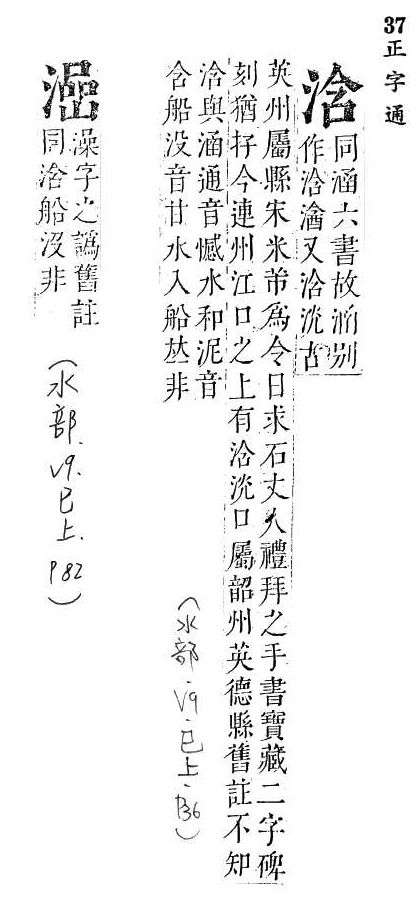 37正字通
浛
同涵六書故別
作浛又浛洸古
英州屬縣宋米芾為令日求石丈人禮拜之手書寶藏二字碑
刻猶存今連州江口之上有浛洸口屬韶州英德縣舊註不知
浛與涵通音憾水和泥音
含船没音甘水入船𠀤非
(水部.V9.巳上.P36)
澡字之譌舊註
同浛船没非
(水部.V9.巳上.P82)